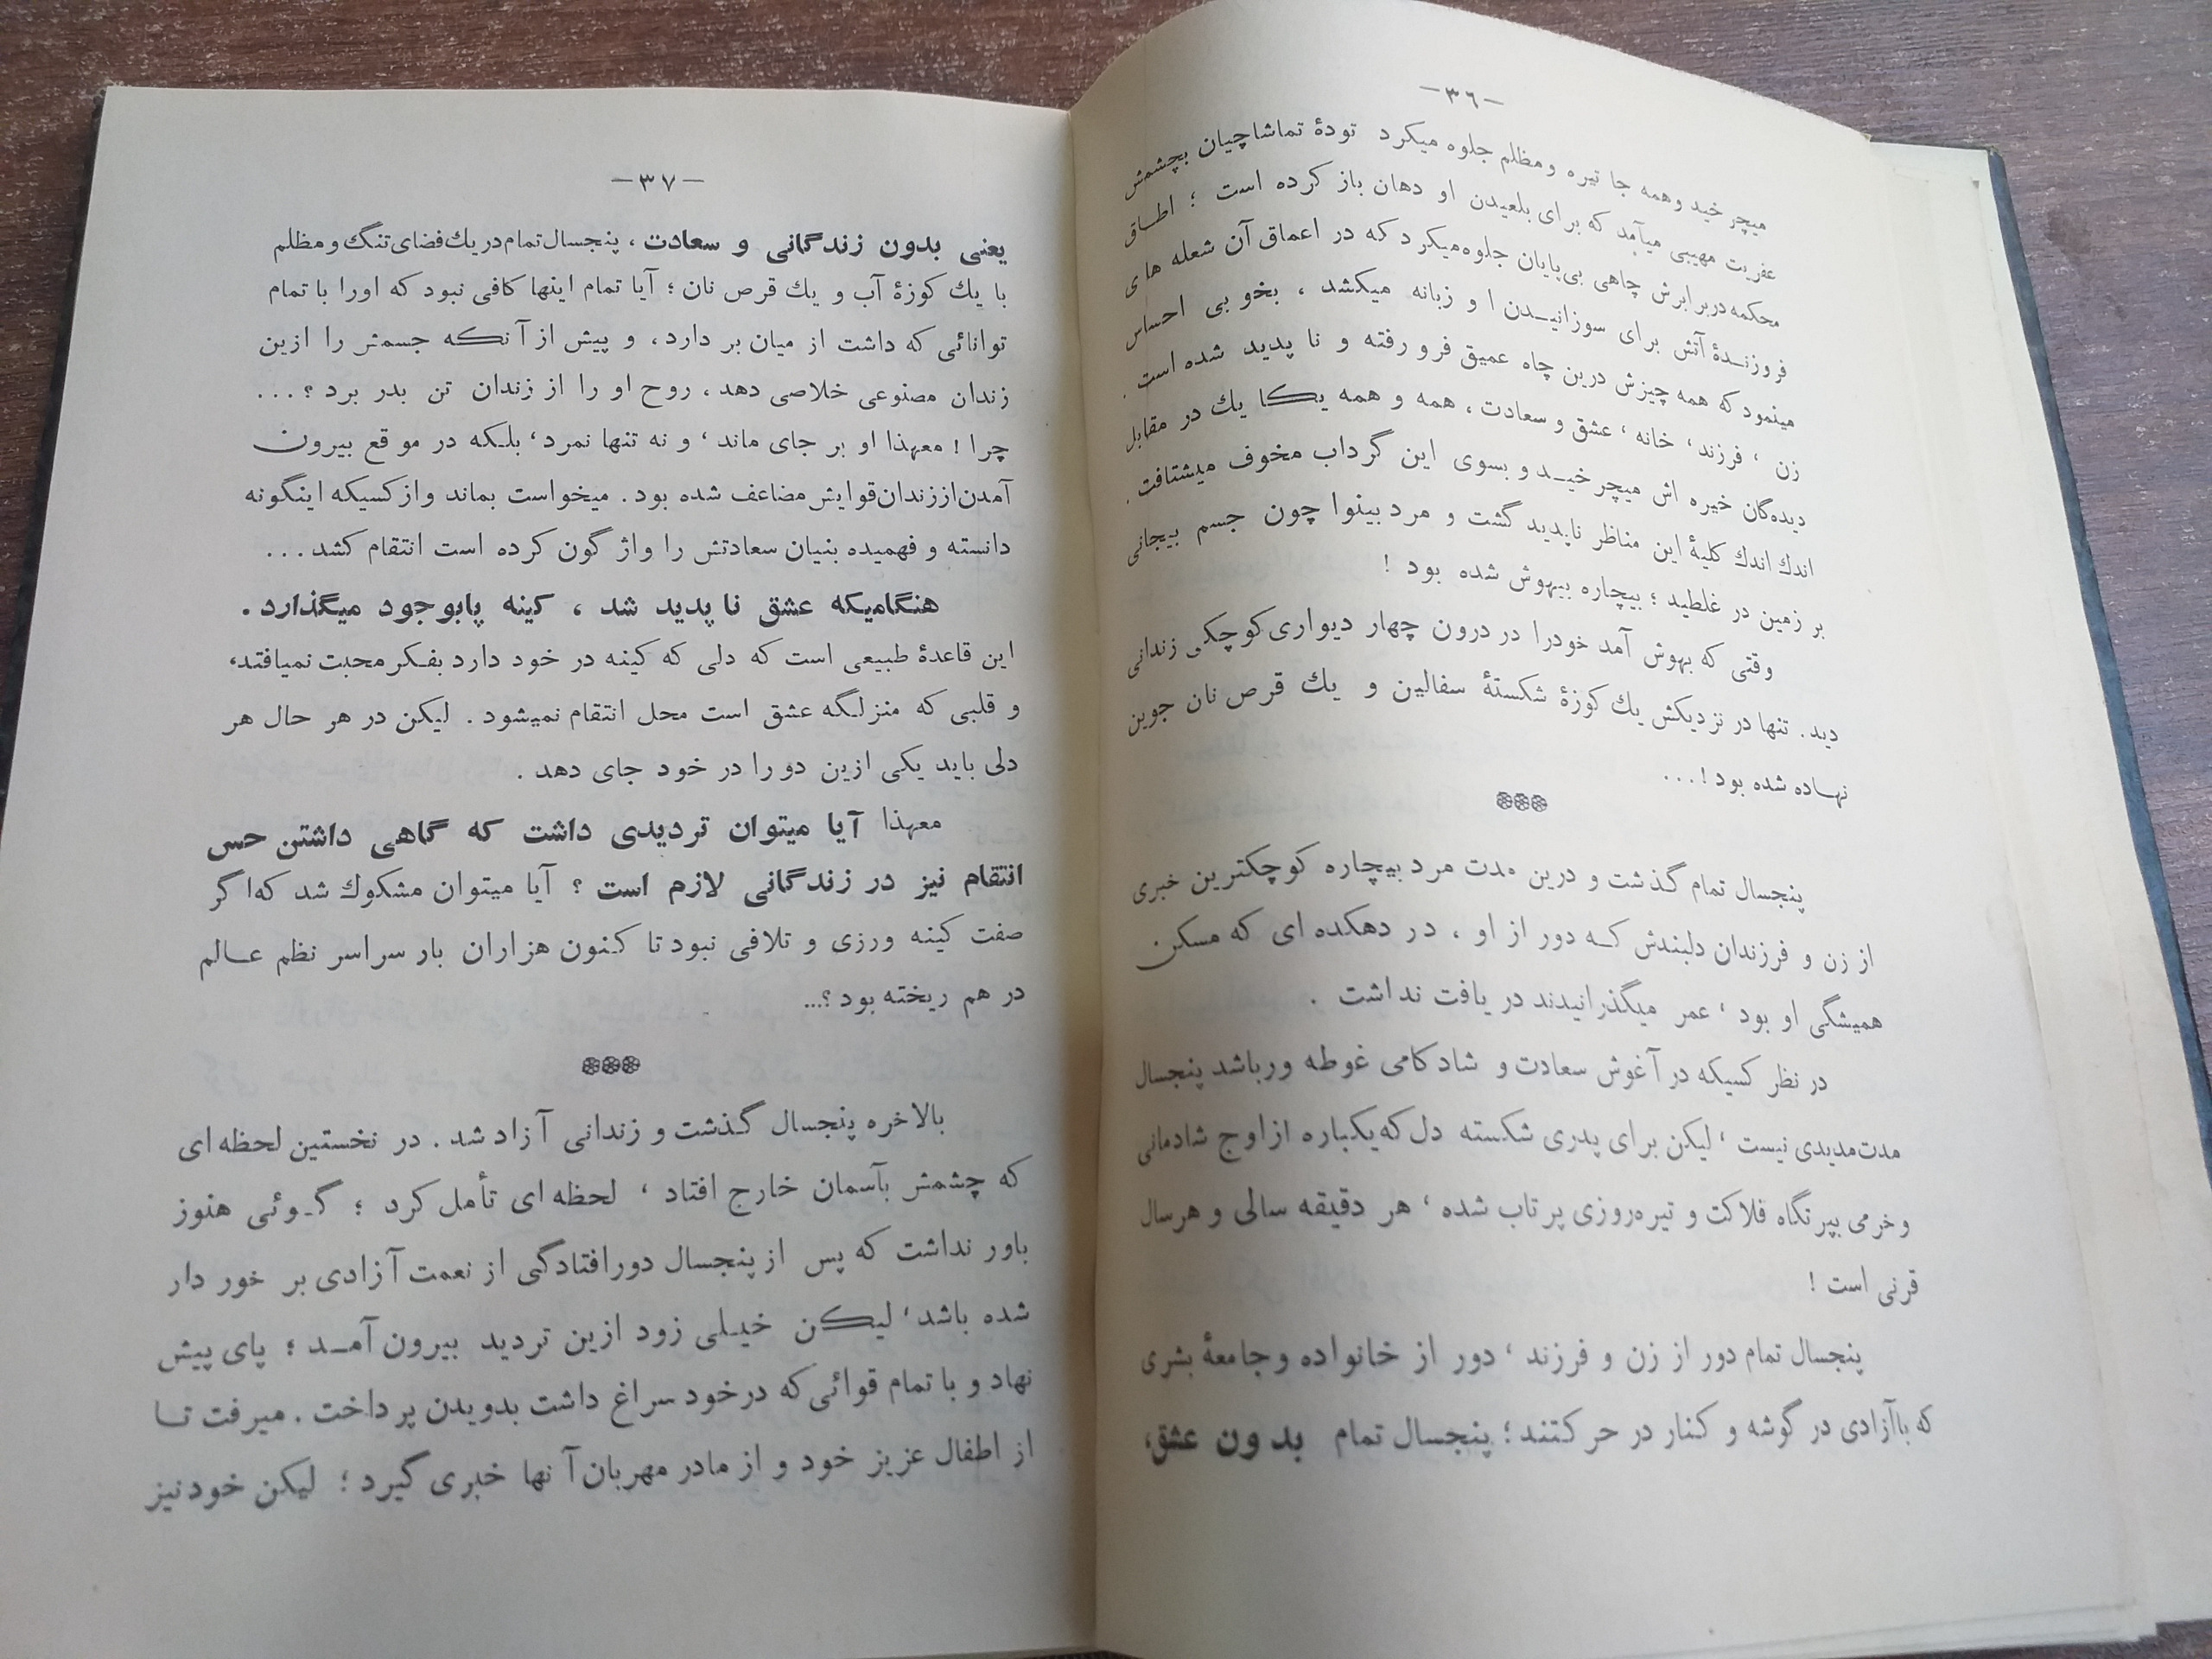 -٣٦-
میچرخید وهمه جا تیره ومظلم جلوه میکرد تودهٔ تماشاچیان بچشمش
عفریت مهیبی میآمد که برای بلعیدن او دهان باز کرده است ؛ اطـاق
محکمه دربرابرش چاهی بی‌پایان جلوه‌میکرد که در اعماق آن شعله های
فروزنـدهٔ آتش برای سوزانیـدن او زبانه میکشد ، بخوبی احساس
مینمود که همه چیزش درین چاه عمیق فرو رفته و نا پدید شده است .
زن ، فرزند ، خانه ، عشق و سعادت ، همه و همه یکا یك در مقابل
دیده‌گان خیره اش میچرخیـد و بسوی این گرداب مخوف میشتافت .
اندك اندك کلیهٔ این مناظر ناپدید گشت و مرد بینوا چون جسم بیجانی
بر زمین در غلطید ؛ بیچاره بیهوش شده بود !
وقتی که بهوش آمد خودرا در درون چهار دیواری کوچکی زندانی
دید . تنها در نزدیکش یك کوزهٔ شکستهٔ سفالین و یك قرص نان جوین
نهـاده شده بود ! ...
پنجسال تمام گذشت و درین مدت مرد بیچاره کوچکترین خبری
از زن و فرزندان دلبندش کـه دور از او ، در دهکده ای که مسکن
همیشگی او بود ، عمر میگذرانیدند در یافت نداشت .
در نظر کسیکه در آغوش سعادت و شادکامی غوطه ورباشد پنجسال
مدت‌مدیدی نیست ، لیکن برای پدری شکسته دل که‌یکباره ازاوج شادمانی
وخرمی بپرتگاه فلاکت و تیره‌روزی پرتاب شده ، هر دقیقه سالی و هرسال
قرنی است !
پنجسال تمام دور از زن و فرزند ، دور از خانواده وجامعهٔ بشری
که باآزادی در گوشه و کنار در حرکتند ؛ پنجسال تمام بدون عشق ،
-٣٧-
یعنی بدون زندگانی و سعادت ، پنجسال‌تمام‌دریك‌فضای‌تنگ‌ومظلم
با یك کوزهٔ آب و یك قرص نان ؛ آیا تمام اینها کافی نبود که اورا با تمام
توانائی که داشت از میان بر دارد ، و پیش از آنکه جسمش را ازین
زندان مصنوعی خلاصی دهد ، روح او را از زندان تن بدر برد ؟ ...
چرا ! معهذا او بر جای ماند ، و نه تنها نمرد ، بلکه در موقع بیرون
آمدن‌اززندان‌قوایش مضاعف شده بود . میخواست بماند وازکسیکه اینگونه
دانسته و فهمیده بنیان سعادتش را واژ گون کرده است انتقام کشد ...
هنگامیکه عشق نا پدید شد ، کینه پابوجود میگذارد .
این قاعدهٔ طبیعی است که دلی که کینه در خود دارد بفکر محبت نمیافتد ،
و قلبی که منزلگه عشق است محل انتقام نمیشود . لیکن در هر حال هر
دلی باید یکی ازین دو را در خود جای دهد .
معهذا آیا میتوان تردیدی داشت که گاهی داشتن حس
انتقام نیز در زندگانی لازم است ؟ آیا میتوان مشکوك شد که‌اگر
صفت کینه ورزی و تلافی نبود تا کنون هزاران بار سراسر نظم عـالم
در هم ریخته بود ؟...
بالاخره پنجسال گذشت و زندانی آزاد شد . در نخستین لحظه ای
که چشمش بآسمان خارج افتاد ، لحظه ای تأمل کرد ؛ گـوئی هنوز
باور نداشت که پس از پنجسال دورافتادگی از نعمت آزادی بر خور دار
شده باشد ، لیکن خیلی زود ازین تردید بیرون آمـد ؛ پای پیش
نهاد و با تمام قوائی که درخود سراغ داشت بدویدن پرداخت . میرفت تـا
از اطفال عزیز خود و از مادر مهربان آنها خبری گیرد ؛ لیکن خود نیز